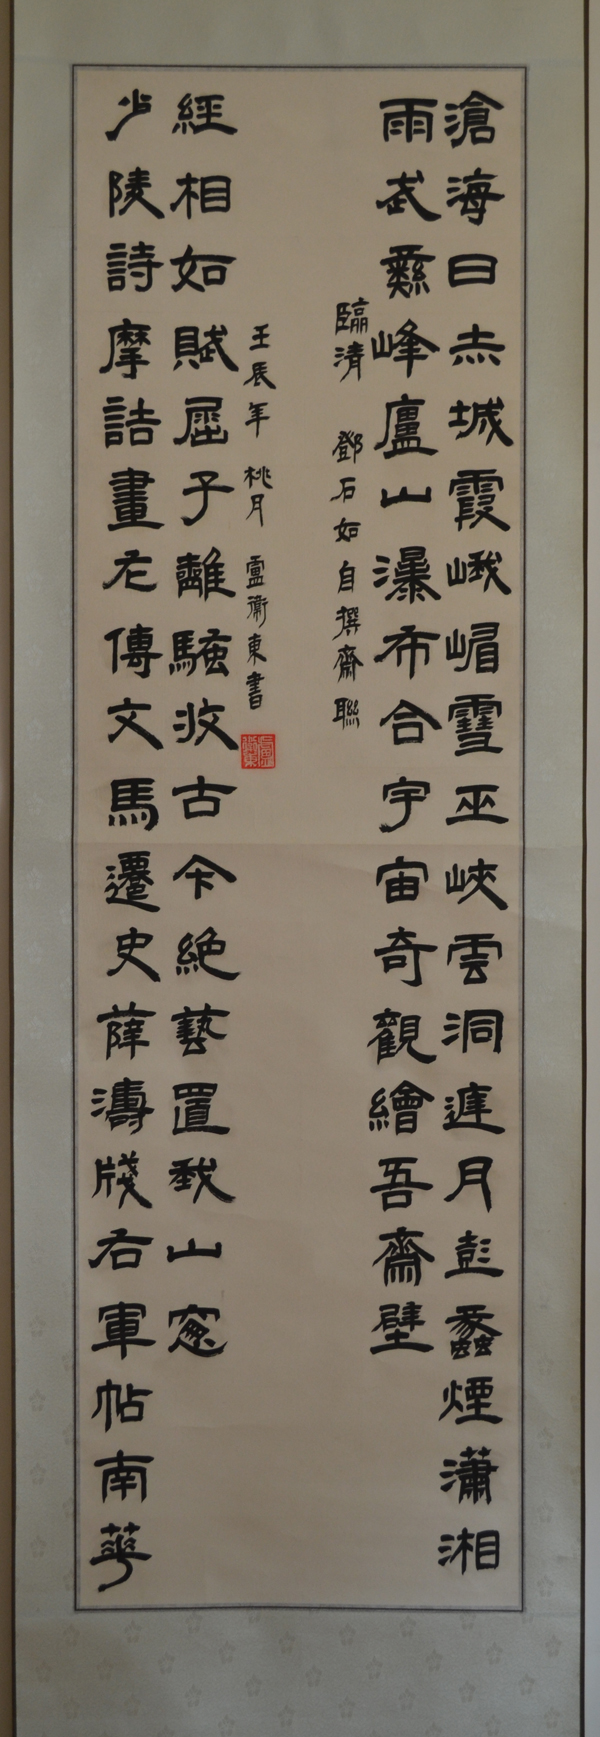 滄海日赤城霞峨嵋雪巫峽雲洞庭月彭蠡煙瀟湘
雨武彝峰廬山瀑布合宇宙奇觀繪吾齋壁
臨清 鄧石如自撰齋聯
少陵詩摩詰畫左傳文馬遷史薛濤牋右軍帖南華
經相如賦屈子離騷收古今絶藝置我山窗
壬辰年 桃月 盧衛東書
盧衛東